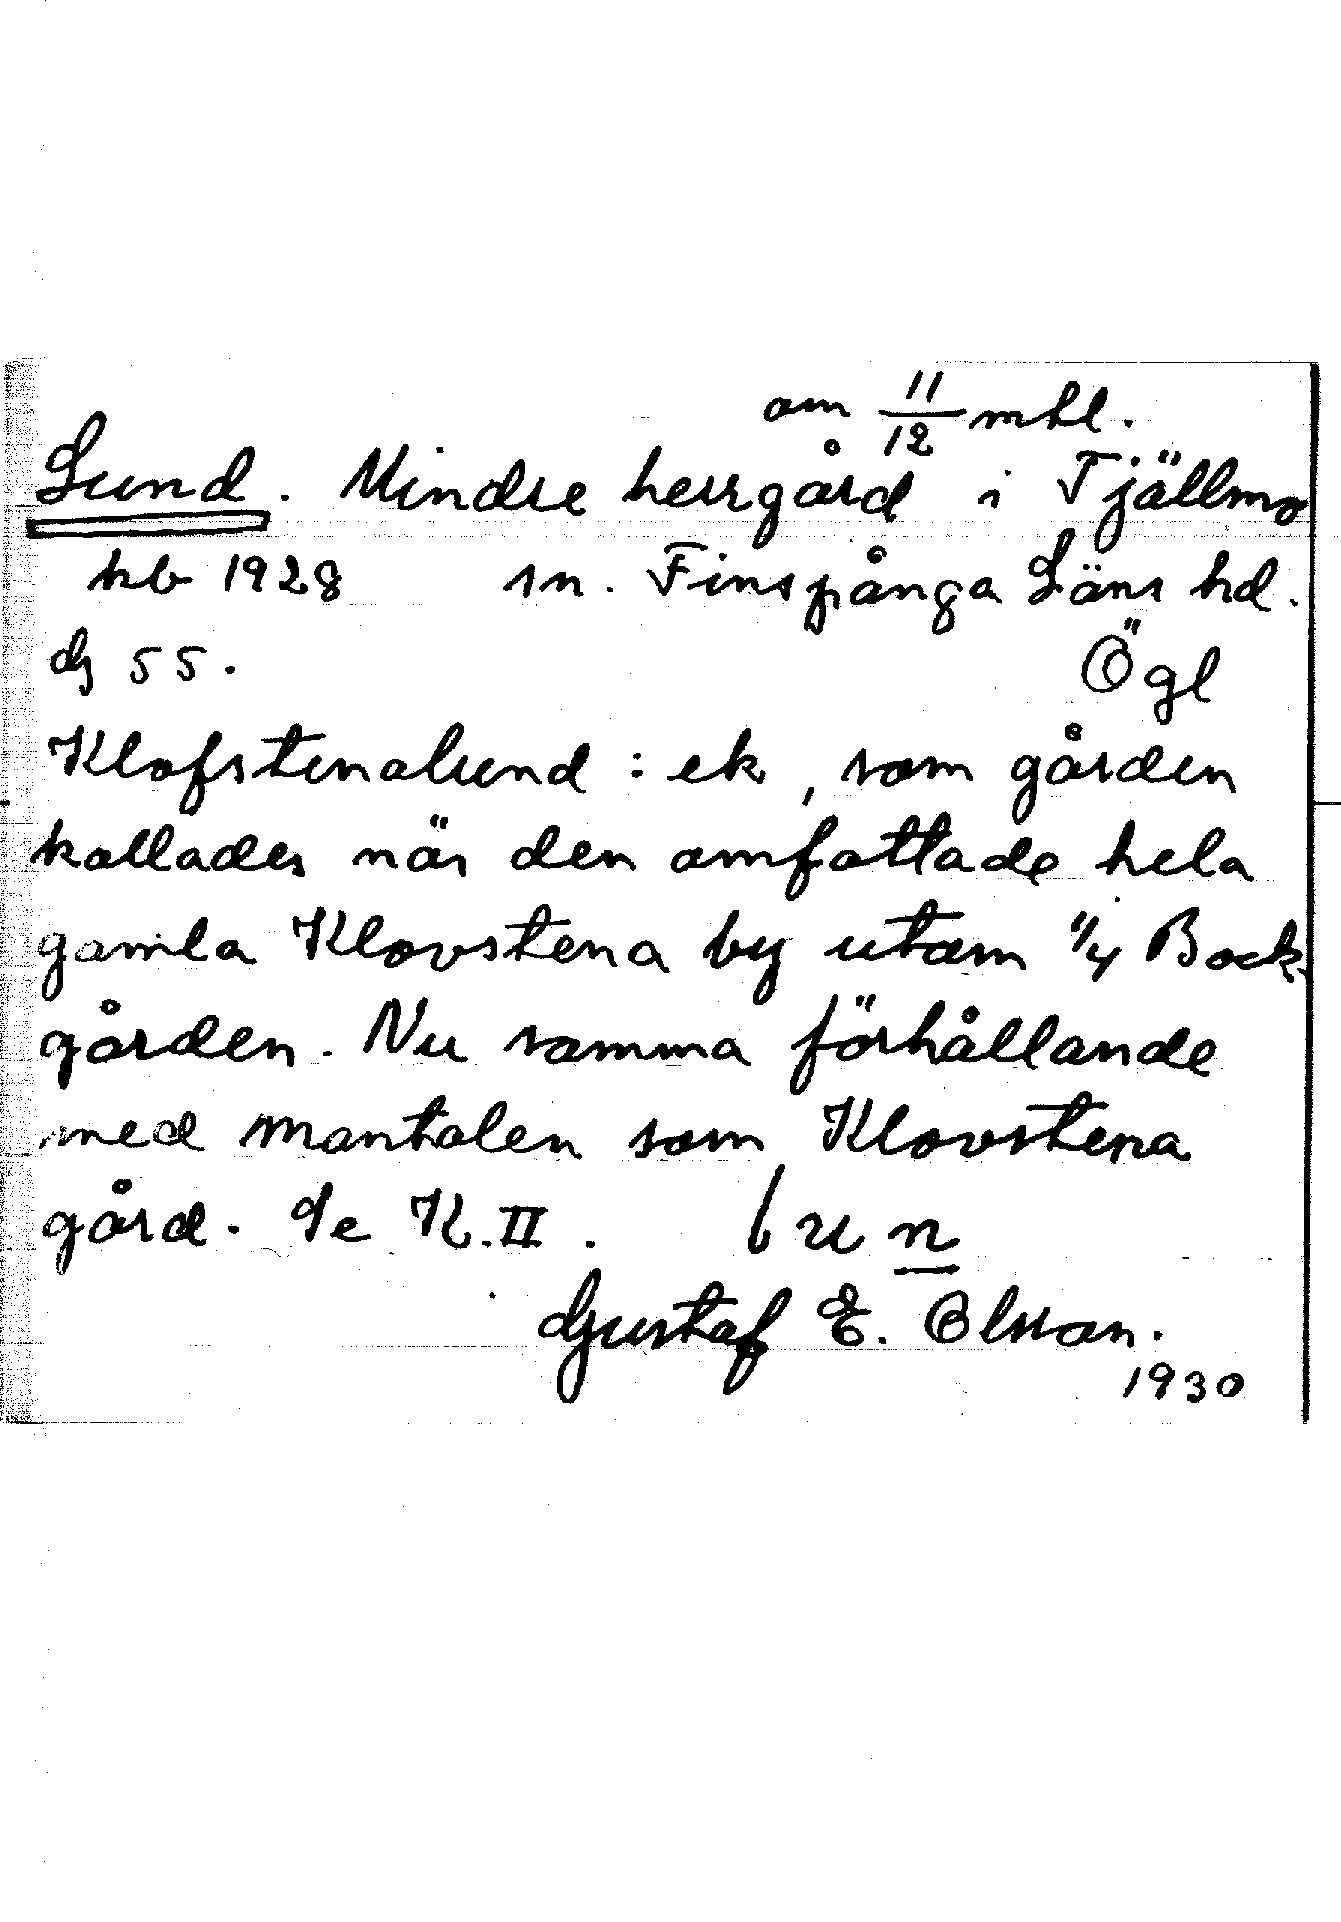 om 11/12 mtl.
Lund. Mindre herrgård i Tjällmo
kb 1928 sn. Finspånga Läns hd.
dg 55. Ögl
Klofstenalund: ek, som gården
kallades när den omfattade hela
gamla Klovstena by utom 1/4 Bock-
gården. Nu samma förhållande
med mantalen som Klovstena
gård. Se K. II. lun
Gustaf E. Olsson.
1930